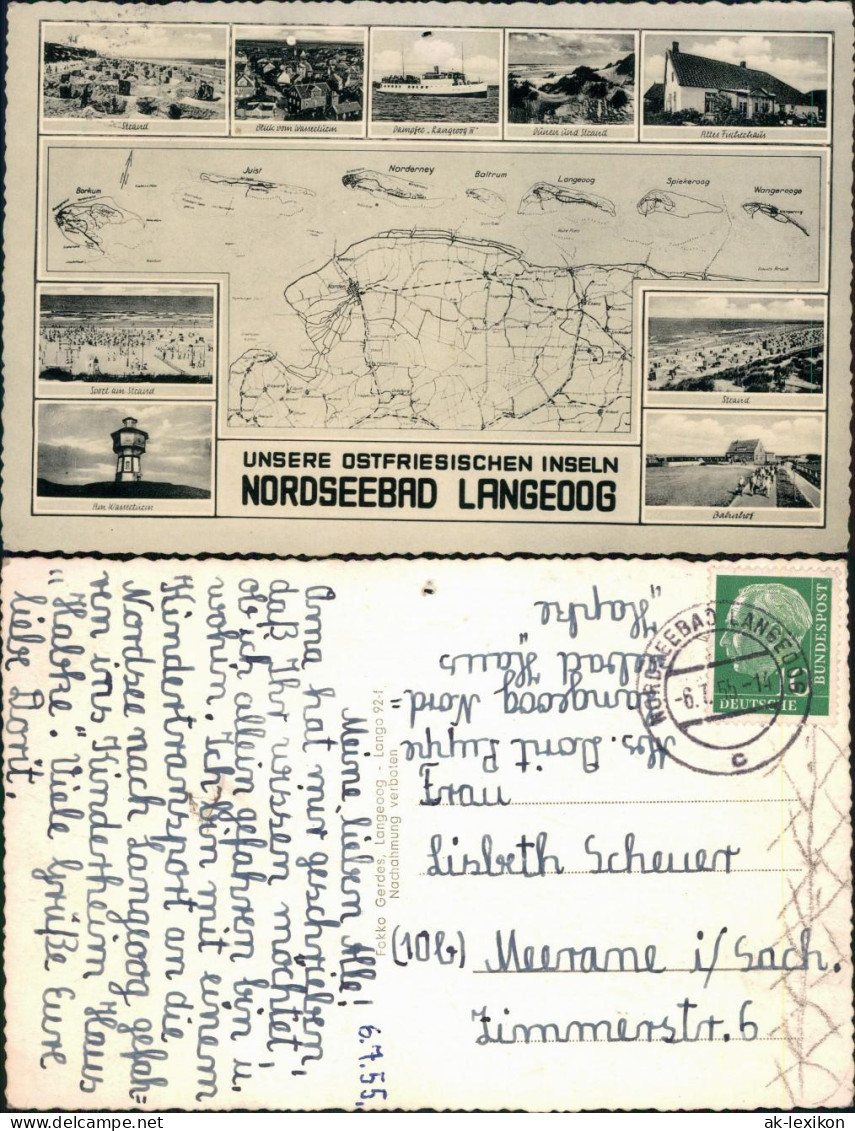 Strand
Blick vom Wasserturm
Dampfer „Langeoog II“
Dünen und Strand
Altes Fischerhaus
Borkum
Juist
Norderney
Baltrum
Langeoog
Spiekeroog
Wangerooge
Norden
Sport am Strand
Strand
Am Wasserturm
Bahnhof
UNSERE OSTFRIESISCHEN INSELN
NORDSEEBAD LANGEOOG
6.7.55.
Meine lieben Alle!
Oma hat mir geschrieben,
daß Ihr wissen möchtet,
ob ich allein gefahren bin u.
wohin. Ich bin mit einem
Kindertransport an die
Nordsee nach Langeoog gefah=
ren ins Kinderheim Haus
"Habke". Viele Grüße Eure
liebe Dorit.
Fokko Gerdes, Langeoog - Lango 92-f
Nachahmung verboten
Abs. Dorit Luppe
Langeoog Nord=
seebad Haus
"Hapke"
NORDSEEBAD LANGEOOG
-6.7.55-14
c
10
DEUTSCHE
BUNDESPOST
Frau
Lisbeth Scheuer
(10b) Meerane i/Sach.
Zimmerstr. 6
ak-lexikon